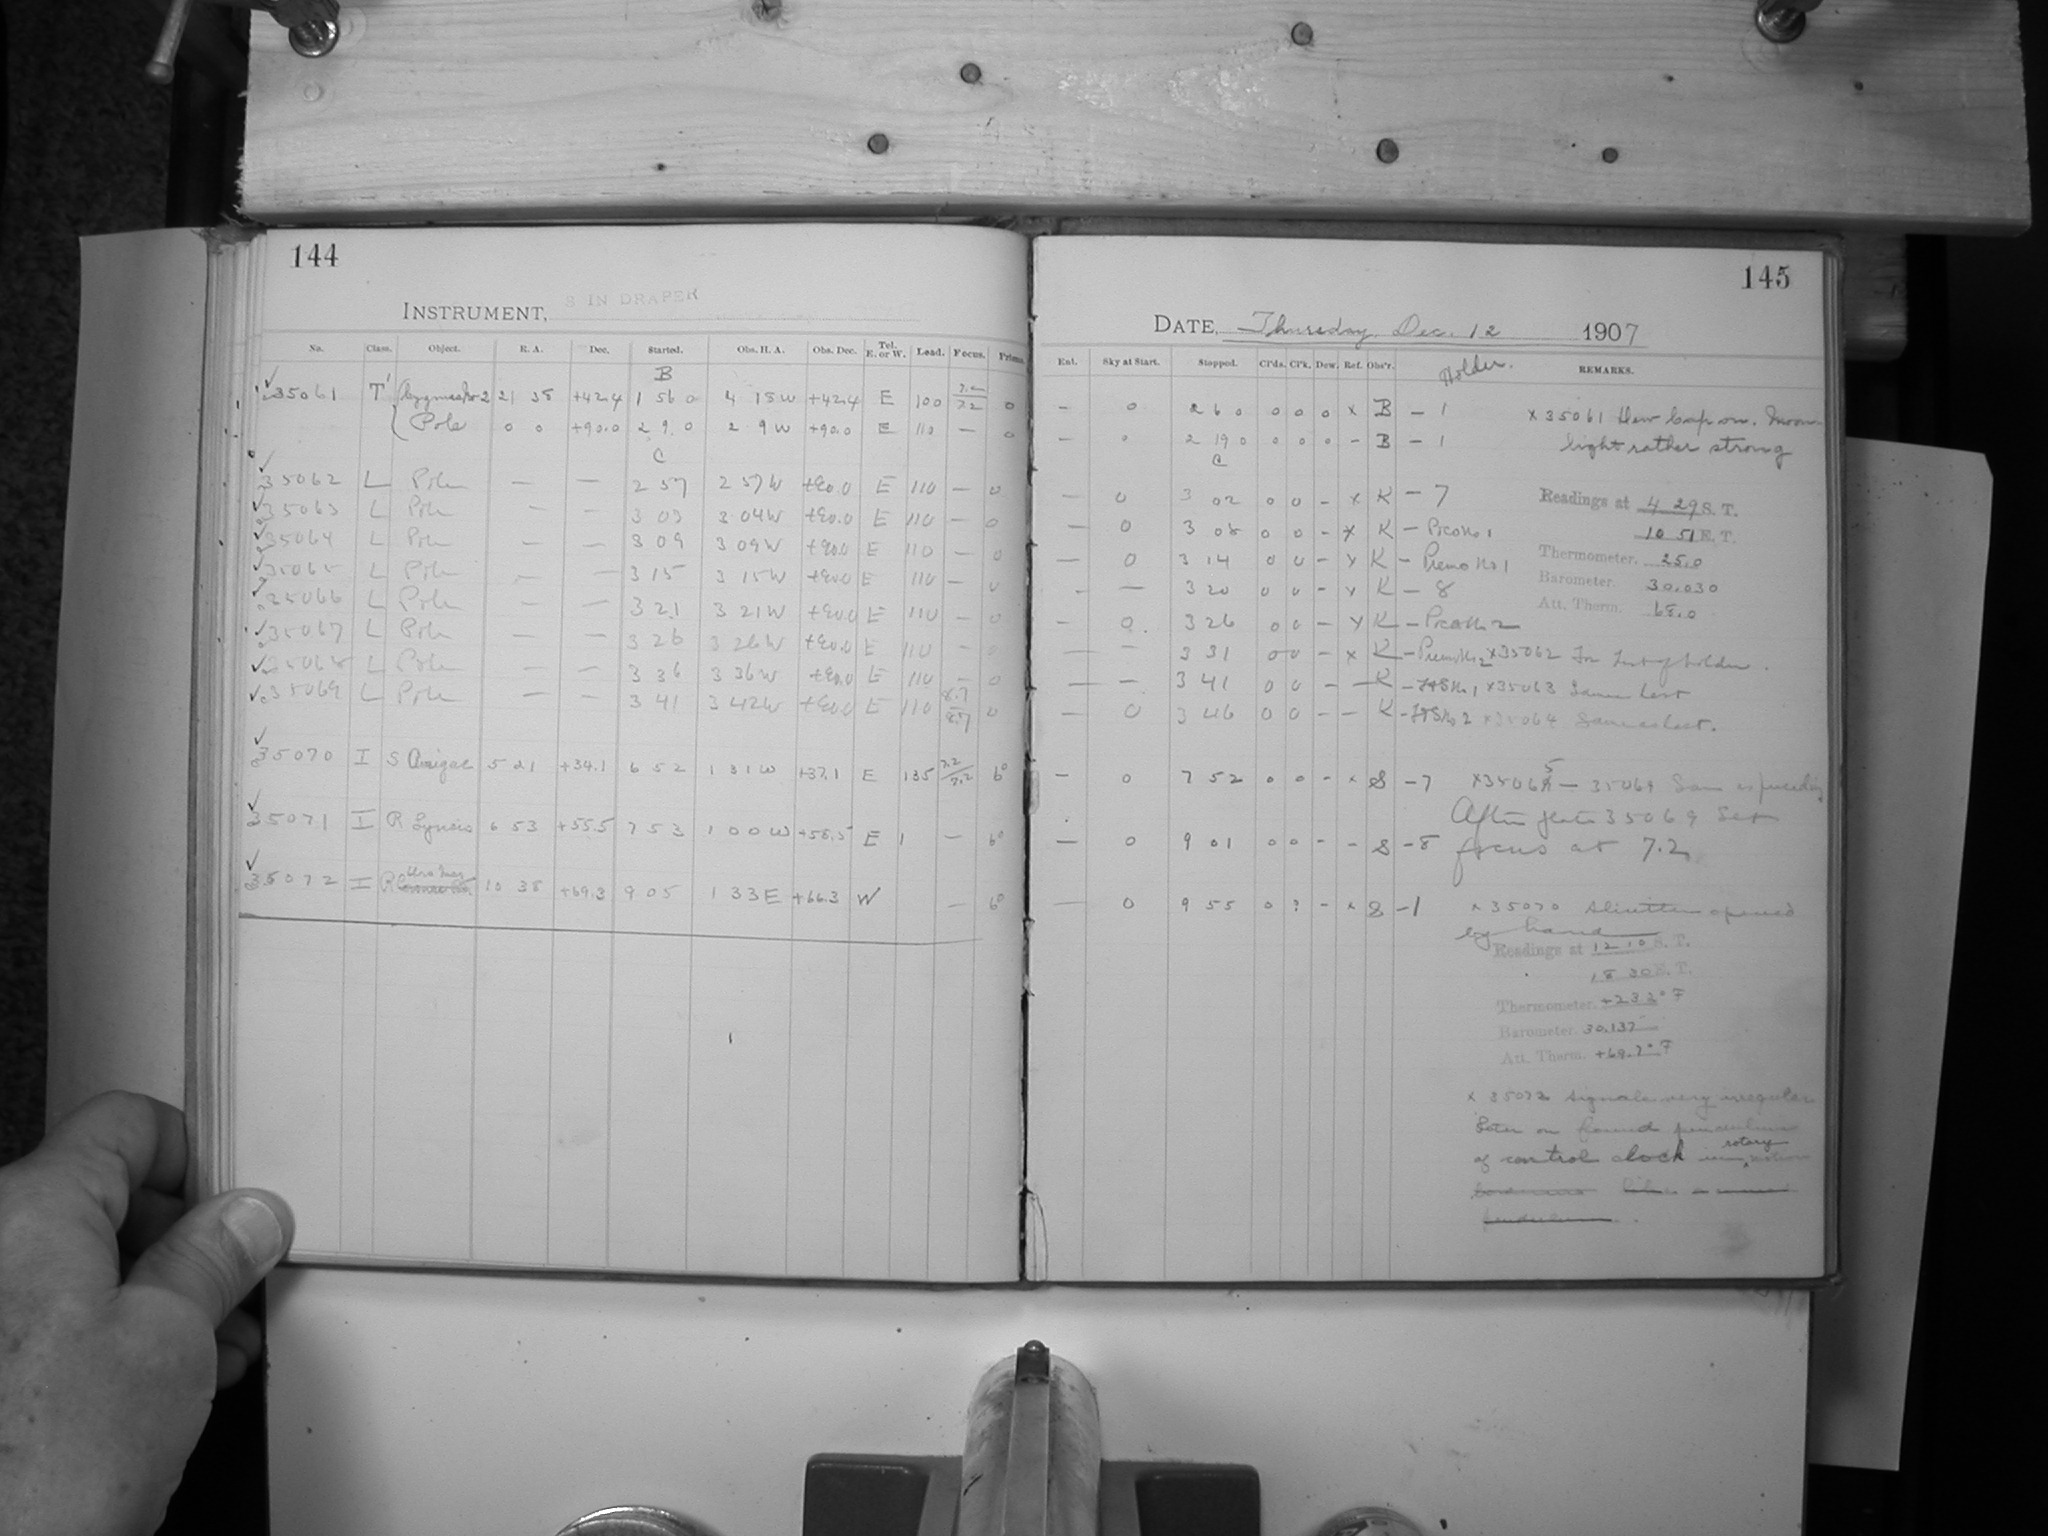 144
8 IN DRAPER
INSTRUMENT,
No. Class. Object. R. A. Dec. Started. Obs. H. A. Obs. Dec. Tel. E. or W. Lead. Focus. Prisms.
B
35061 T' 21 38 +42.4 1 56 0 4 18 W +42.4 E 100 7.2 0
Pole 0 0 +90.0 2 9.0 2 9 W +90.0 E 110 — 0
C
35062 L Pole — — 2 57 2 57 W +90.0 E 110 — 0
35063 L Pole — — 3 03 3 04 W +90.0 E 110 — 0
35064 L Pole — — 3 09 3 09 W +90.0 E 110 — 0
35065 L Pole — — 3 15 3 15 W +90.0 E 110 — 0
35066 L Pole — — 3 21 3 21 W +90.0 E 110 — 0
35067 L Pole — — 3 26 3 26 W +90.0 E 110 — 0
35068 L Pole — — 3 36 3 36 W +90.0 E 110 — 0
35069 L Pole — — 3 41 3 42 W +90.0 E 110 8.7 0
35070 I S Aurigae 5 21 +34.1 6 52 1 31 W +37.1 E 135 7.2 7.2 6°
35071 I R Lyncis 6 53 +55.5 7 53 1 00 W +58.5 E — 6°
35072 I R Urs Maj 10 38 +69.3 9 05 1 33 E +66.3 W — 6°
145
DATE, Thursday Dec. 12 1907
Ent. Sky at Start. Stopped. Cl'ds. Cl'k. Dew. Ref. Obs'r. Holder. REMARKS.
— 0 2 6 0 0 0 0 x B — 1 x 35061 Dew Cap on. Moon-
— 0 2 19 0 0 0 0 – B — 1 light rather strong
C
— 0 3 02 0 0 – x K — 7
Readings at 4 29 S. T.
— 0 3 08 0 0 – x K — Pico No 1
10 51 E. T.
— 0 3 14 0 0 – x K — Premo No 1
Thermometer. 25.0
— — 3 20 0 0 – x K — 8
Barometer. 30.030
Att. Therm.
— 0 3 26 0 0 – x K — Pico No 2
— — 3 31 0 0 – x K — Premo No 2 x 35062 For test of holder.
— — 3 41 0 0 – — K — No 1 x 35063 Same test
— 0 3 46 0 0 – – K — No 2 x 35064 Same as last.
— 0 7 52 0 0 – x S — 7 x 35065 — 35069 Same as preceding
After plate 35069 Set
— 0 9 01 0 0 – – S — 8 focus at 7.2
— 0 9 55 0 ? – x S — 1 x 35070 Shutter opened
by hand
Readings at 12 10 S. T.
18 30 E. T.
Thermometer. +23.2° F
Barometer. 30.137
Att. Therm. +69.7° F
x 35072 Signals very irregular
Later on found pendulum
rotary
of control clock in motion
pendulum